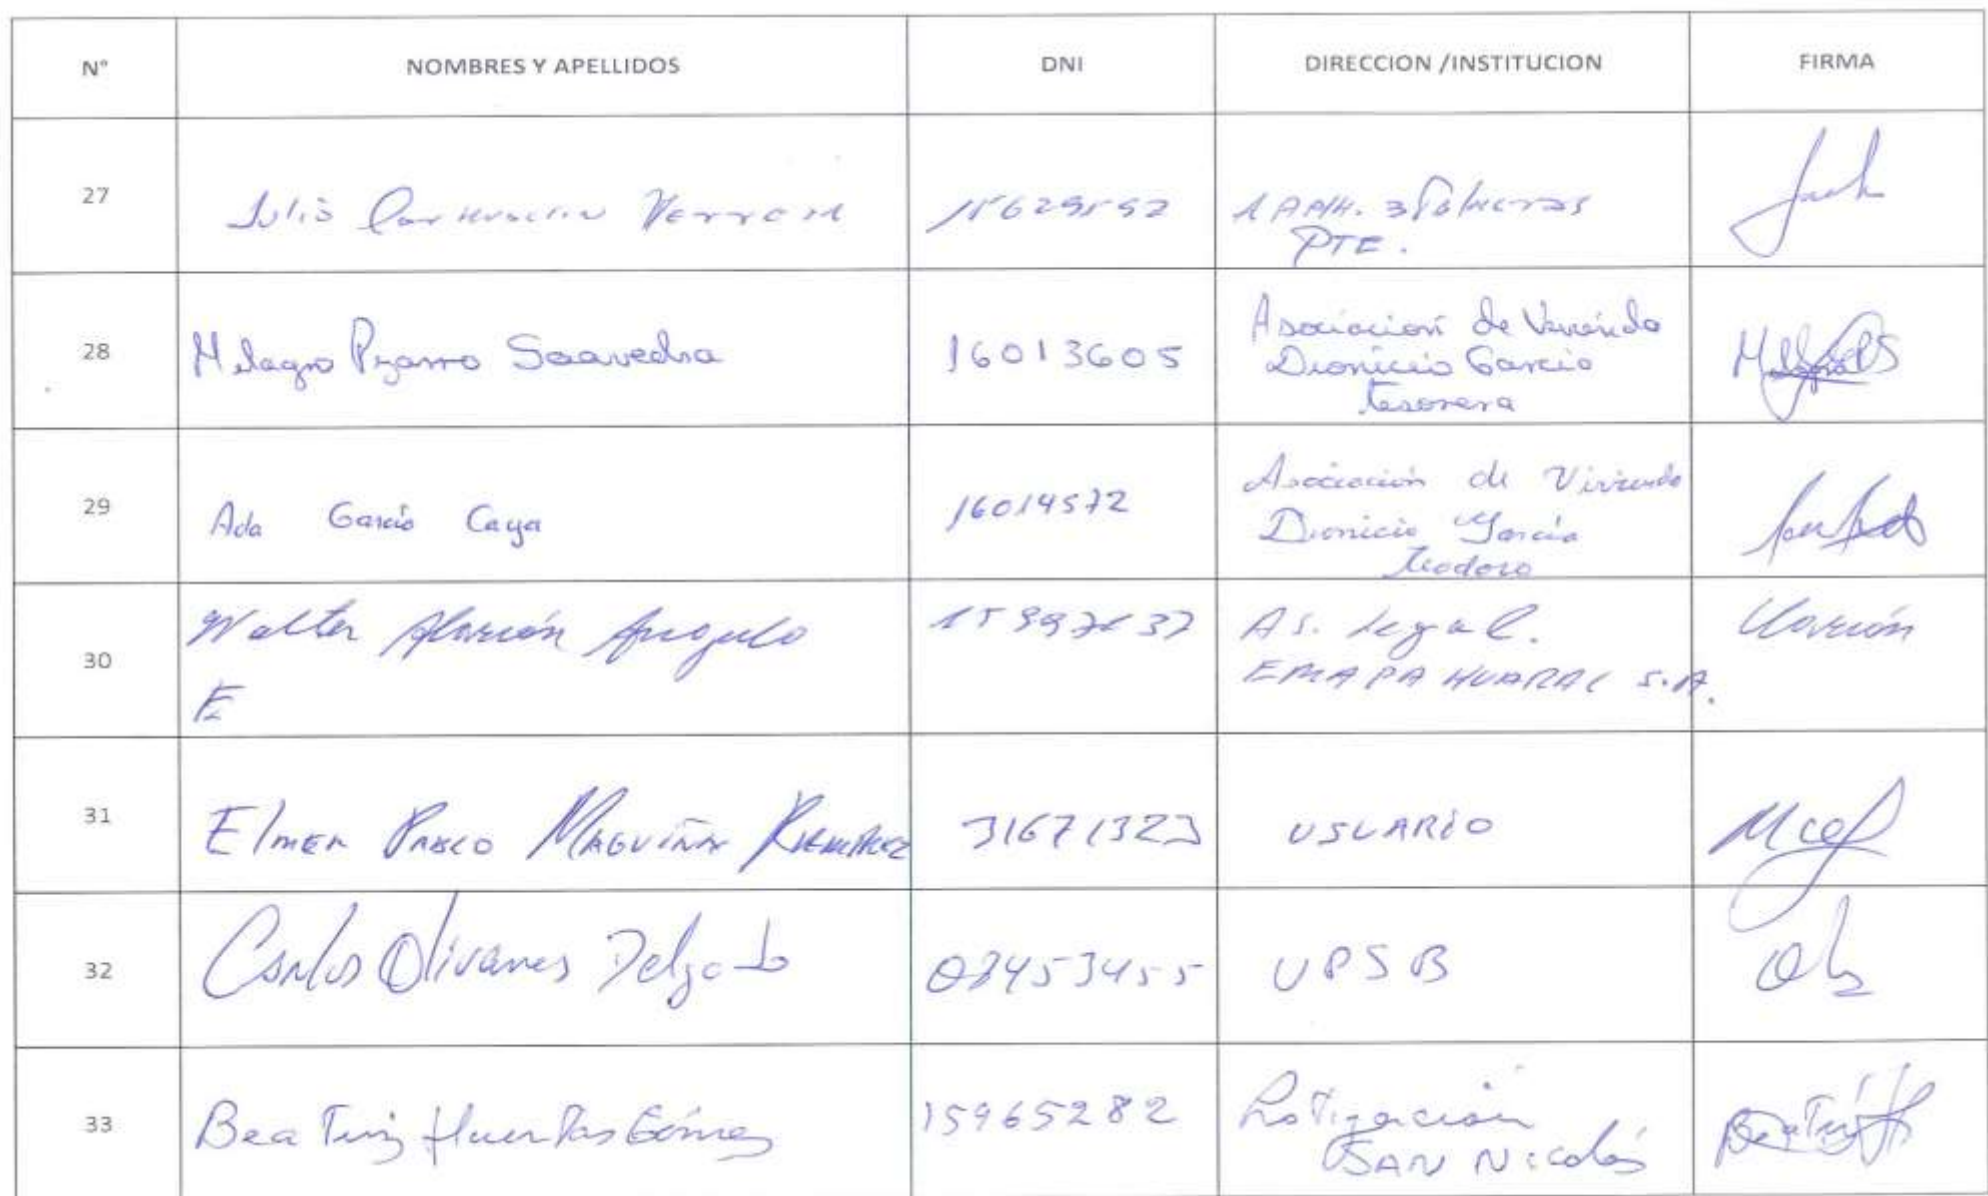 N° NOMBRES Y APELLIDOS DNI DIRECCION /INSTITUCION FIRMA
27 Julio 15629592 3 Palmeras
PTE.
28 Milagro Pizarro Saavedra 16013605 Asociacion de Vivienda
Dionicio Garcia
tesorera
29 Ada Garcia Caya 16014572 Asociación de Vivienda
Dionicio García
Teodoro
30 Walter Alarcón Angulo As. Legal.
E EMAPA HUARAL S.A.
31 Elmer Pablo Maguiña Ramirez 31671323 USUARIO
32 Carlos Olivares Delgado 08453455 UPSB
33 Beatriz Huertas Gómez 15965282 Lotización
SAN Nicolás